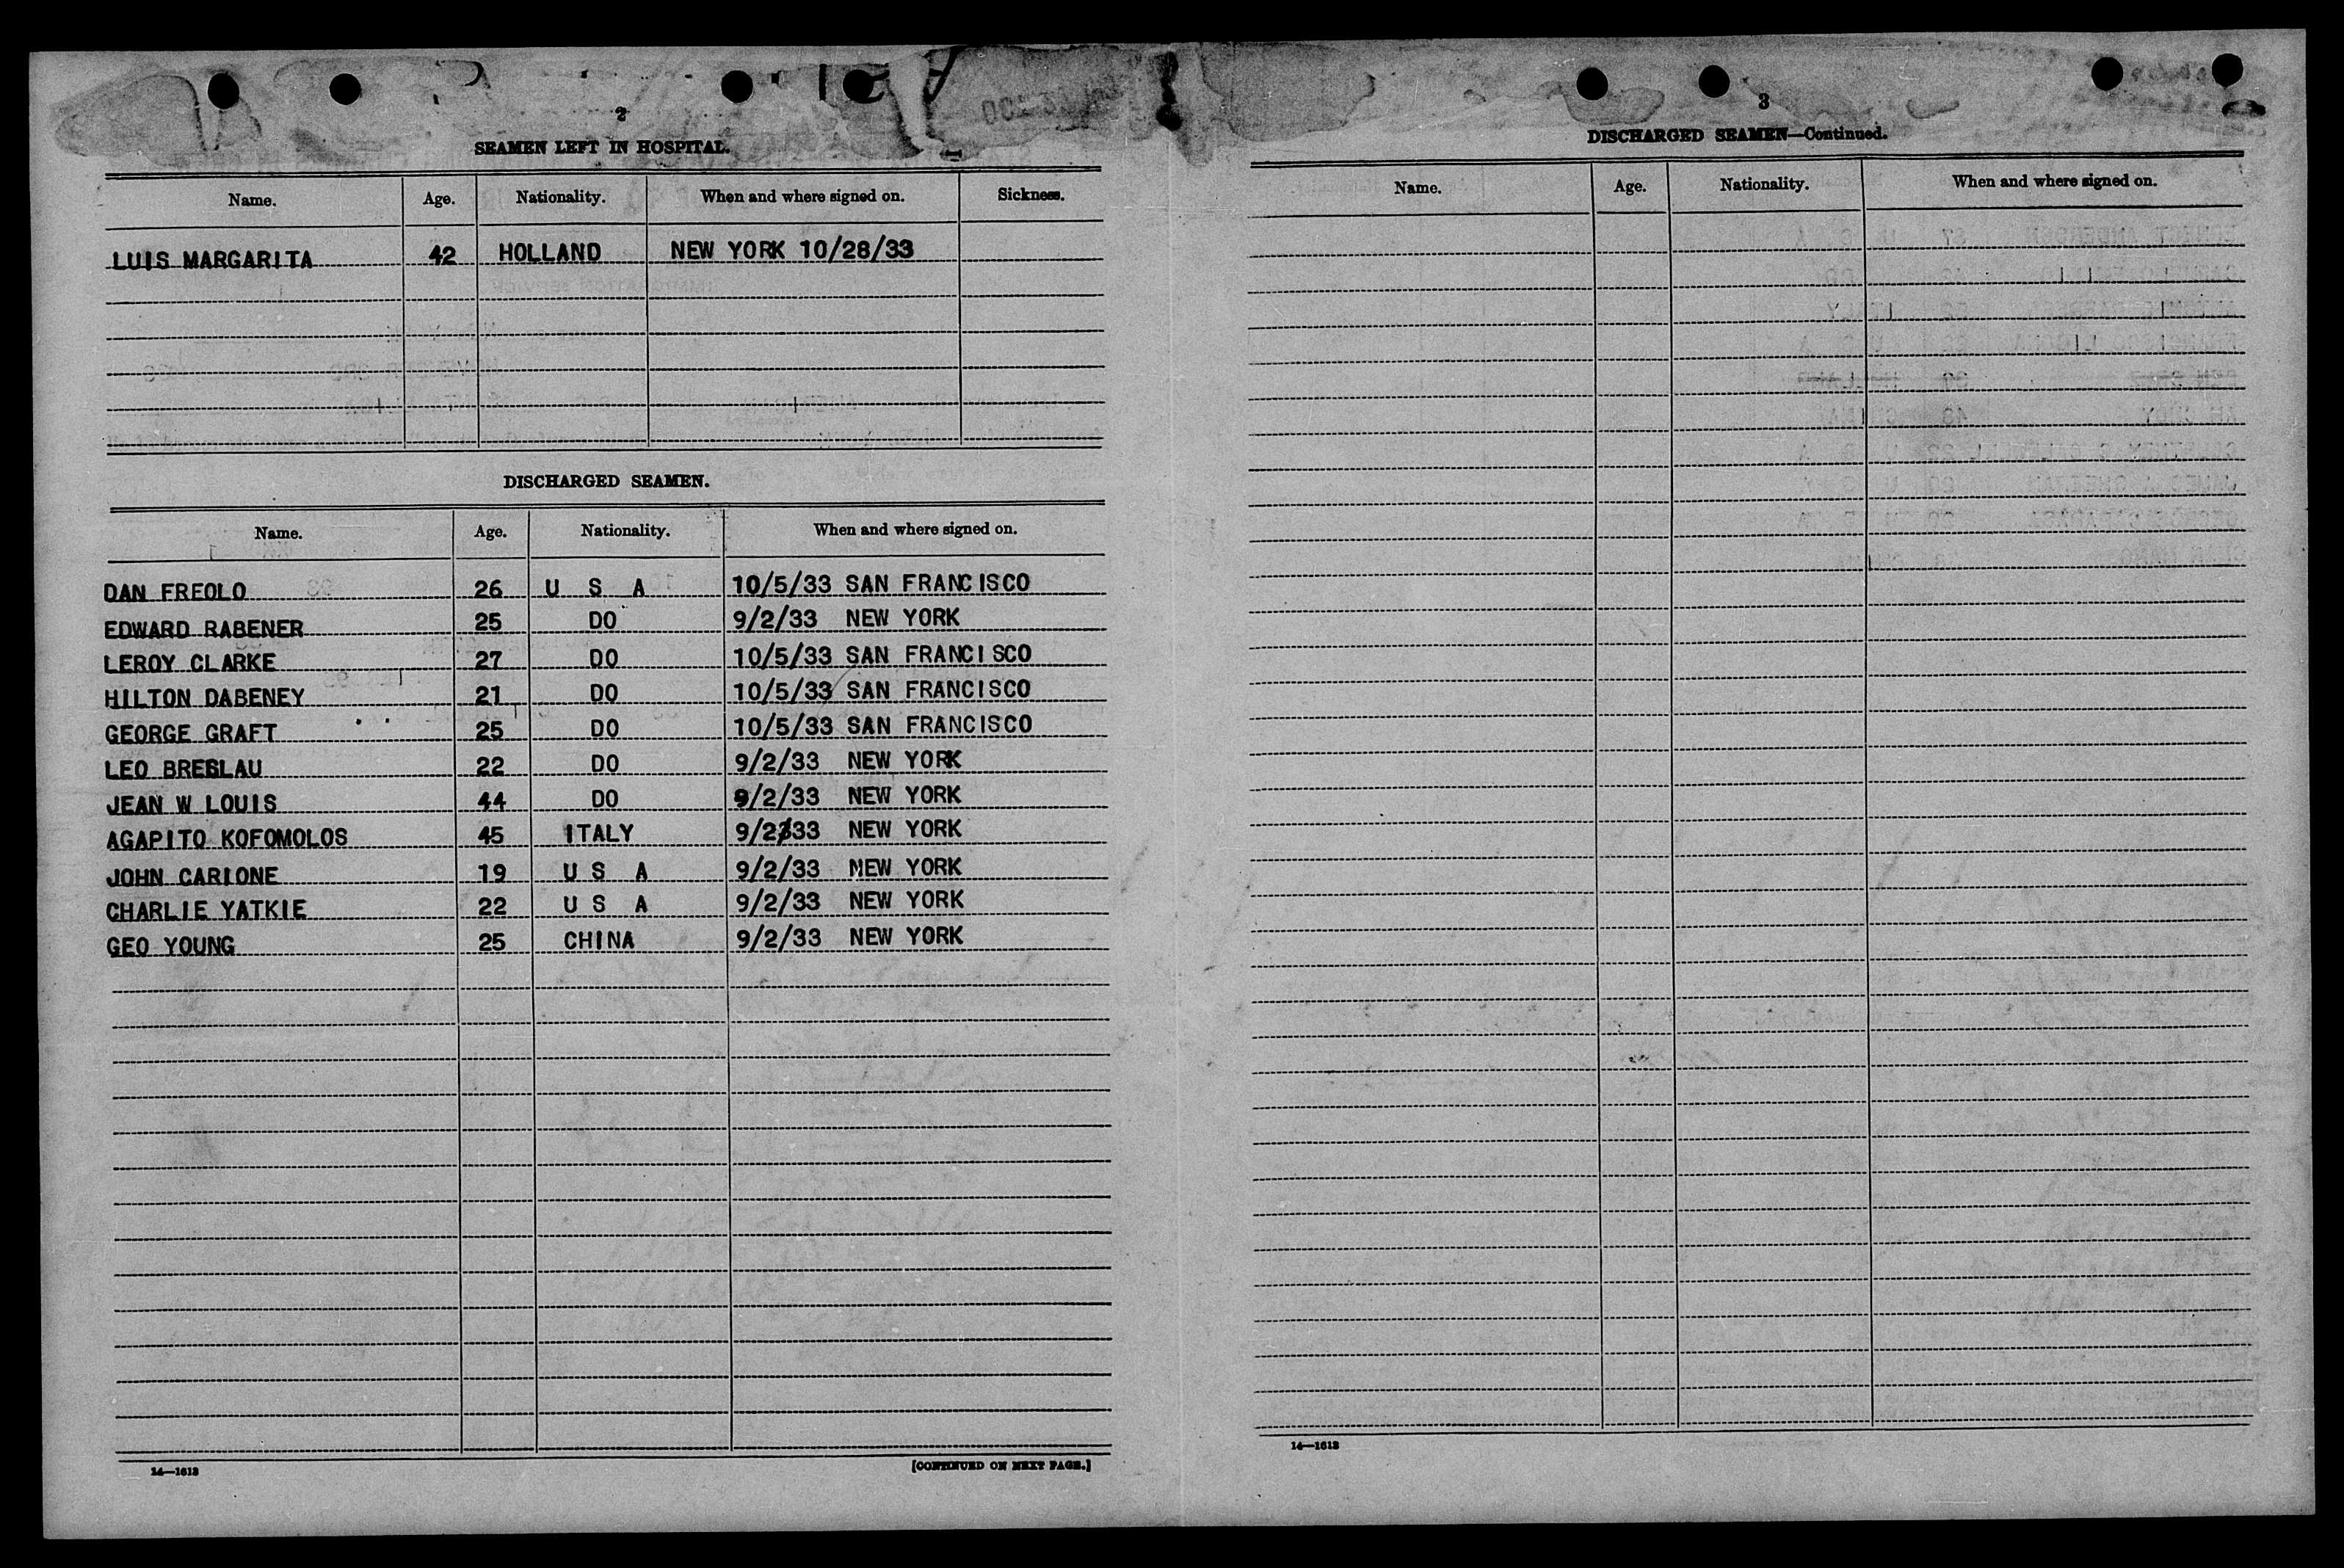 2
SEAMEN LEFT IN HOSPITAL.
Name. Age. Nationality. When and where signed on. Sickness.
LUIS MARGARITA 42 HOLLAND NEW YORK 10/28/33
DISCHARGED SEAMEN.
Name. Age. Nationality. When and where signed on.
DAN FREOLO 26 U S A 10/5/33 SAN FRANCISCO
EDWARD RABENER 25 DO 9/2/33 NEW YORK
LEROY CLARKE 27 DO 10/5/33 SAN FRANCISCO
HILTON DABENEY 21 DO 10/5/33 SAN FRANCISCO
GEORGE GRAFT 25 DO 10/5/33 SAN FRANCISCO
LEO BRESLAU 22 DO 9/2/33 NEW YORK
JEAN W LOUIS 44 DO 9/2/33 NEW YORK
AGAPITO KOFOMOLOS 45 ITALY 9/2/33 NEW YORK
JOHN CARIONE 19 U S A 9/2/33 NEW YORK
CHARLIE YATKIE 22 U S A 9/2/33 NEW YORK
GEO YOUNG 25 CHINA 9/2/33 NEW YORK
14—1613
[CONTINUED ON NEXT PAGE.]
3
DISCHARGED SEAMEN—Continued.
Name. Age. Nationality. When and where signed on.
14—1613